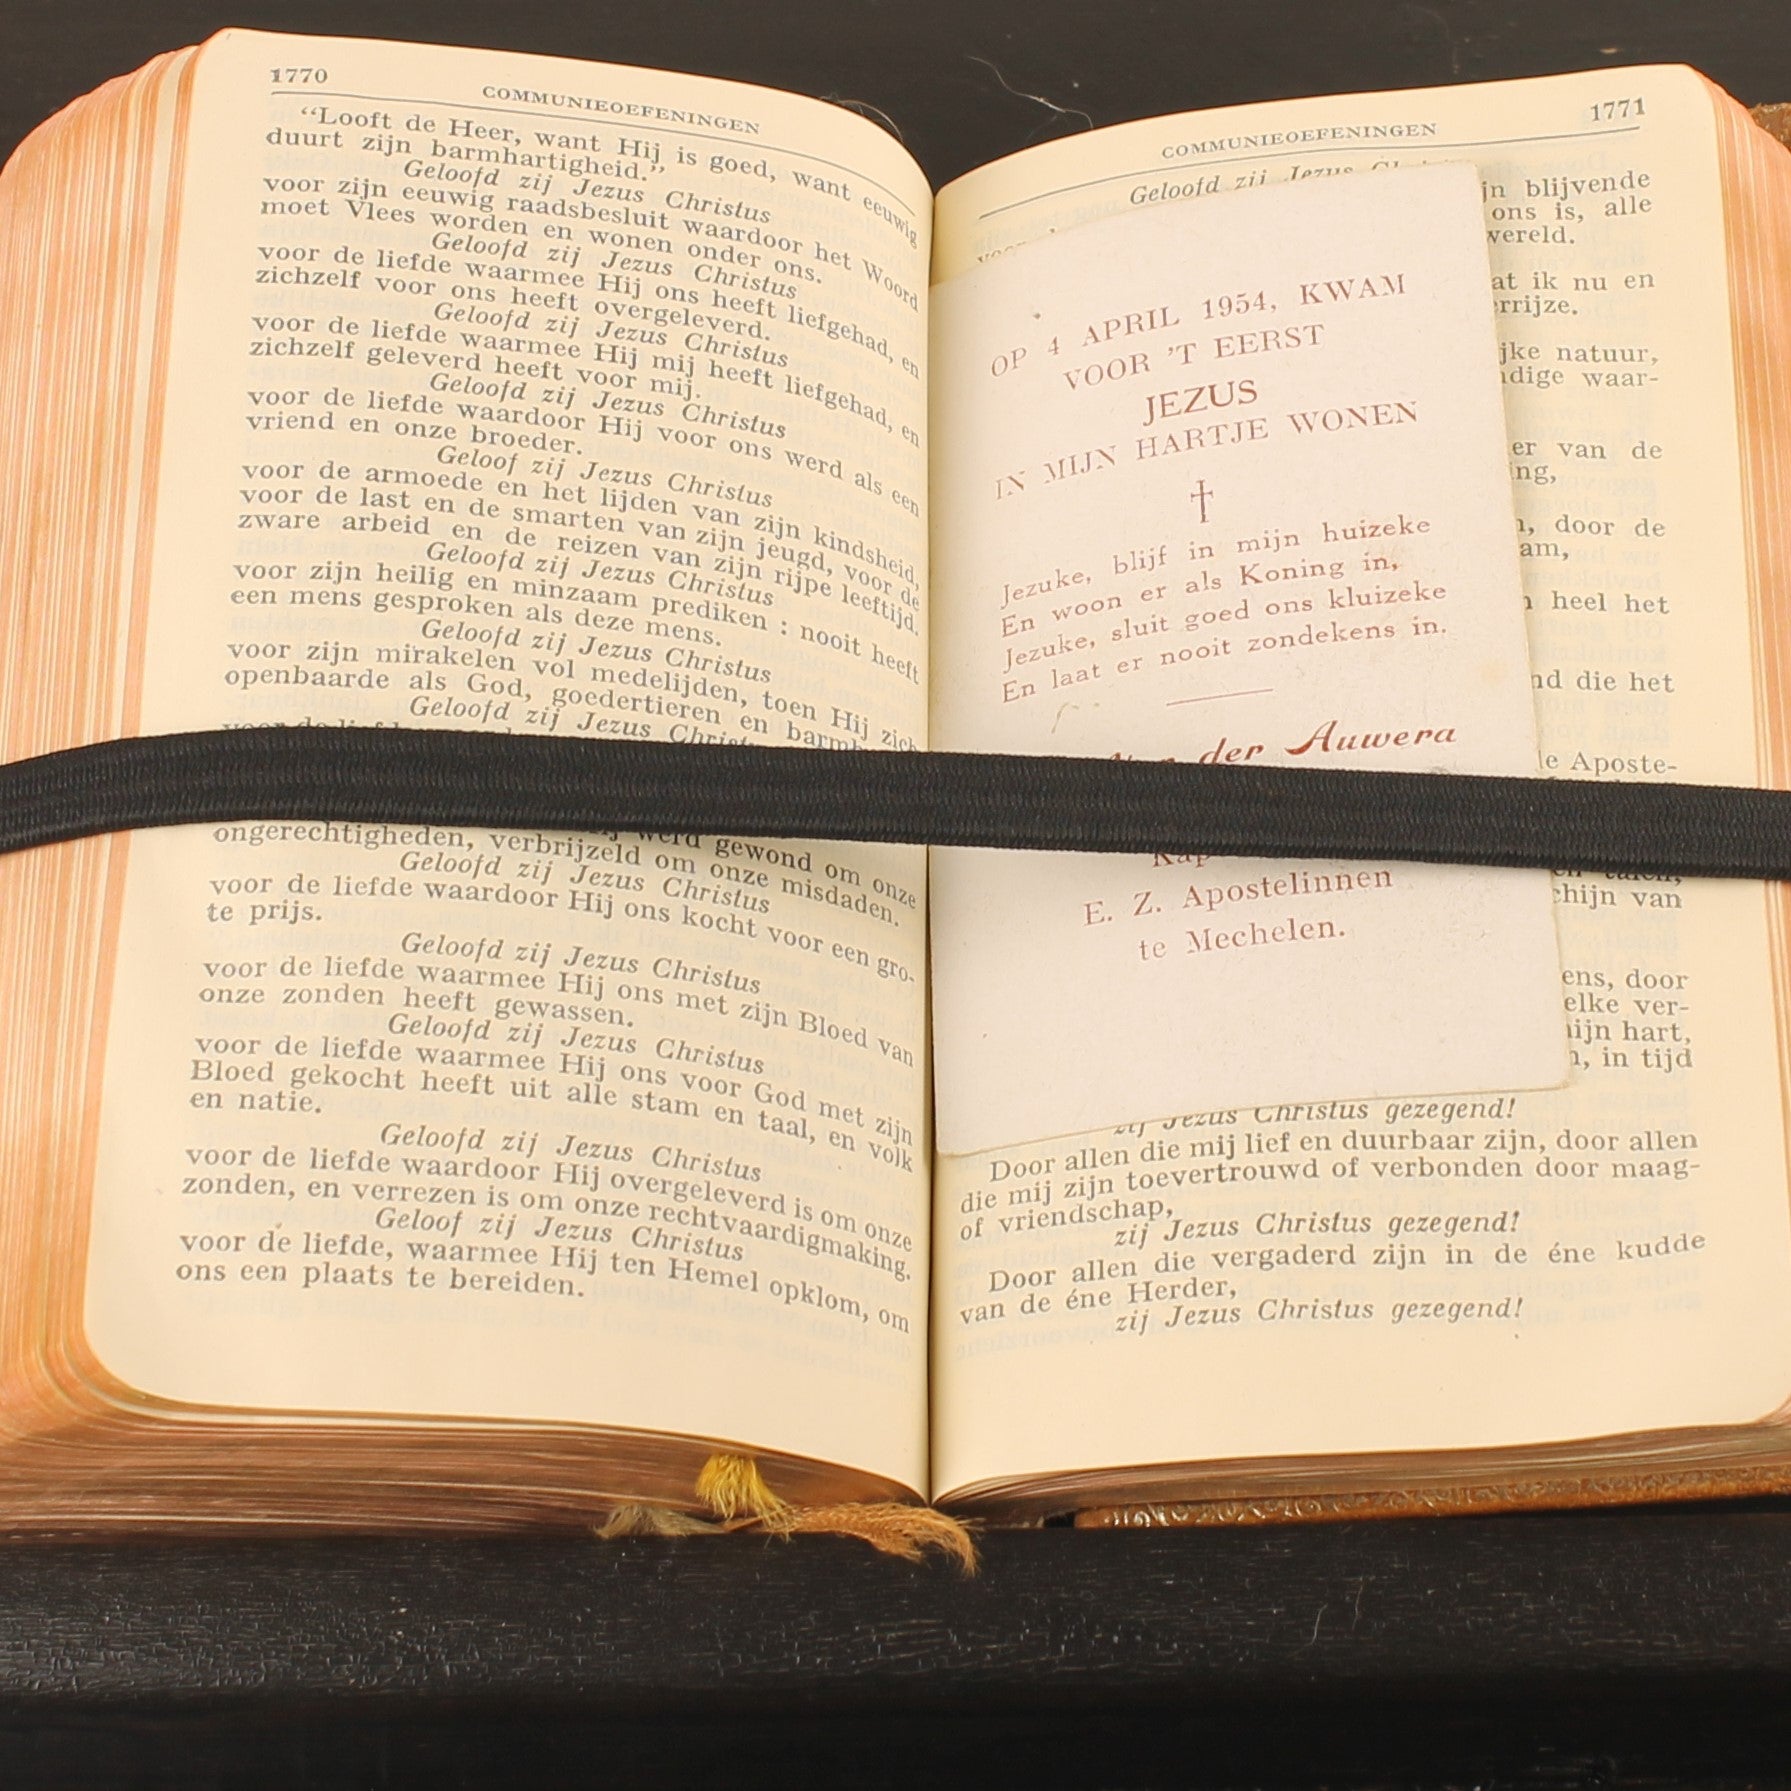 1770
COMMUNIEOEFENINGEN
“Looft de Heer, want Hij is goed, want eeuwig
duurt zijn barmhartigheid.”
Geloofd zij Jezus Christus
voor zijn eeuwig raadsbesluit waardoor het Woord
moet Vlees worden en wonen onder ons.
Geloofd zij Jezus Christus
voor de liefde waarmee Hij ons heeft liefgehad, en
zichzelf voor ons heeft overgeleverd.
Geloofd zij Jezus Christus
voor de liefde waarmee Hij mij heeft liefgehad, en
zichzelf geleverd heeft voor mij.
Geloofd zij Jezus Christus
voor de liefde waardoor Hij voor ons werd als een
vriend en onze broeder.
Geloof zij Jezus Christus
voor de armoede en het lijden van zijn kindsheid,
voor de last en de smarten van zijn jeugd, voor de
zware arbeid en de reizen van zijn rijpe leeftijd.
Geloofd zij Jezus Christus
voor zijn heilig en minzaam prediken : nooit heeft
een mens gesproken als deze mens.
Geloofd zij Jezus Christus
voor zijn mirakelen vol medelijden, toen Hij zich
openbaarde als God, goedertieren en
Geloofd zij Jezus
werd gewond om onze
ongerechtigheden, verbrijzeld om onze misdaden.
Geloofd zij Jezus Christus
voor de liefde waardoor Hij ons kocht voor een gro-
te prijs.
Geloofd zij Jezus Christus
voor de liefde waarmee Hij ons met zijn Bloed van
onze zonden heeft gewassen.
Geloofd zij Jezus Christus
voor de liefde waarmee Hij ons voor God met zijn
Bloed gekocht heeft uit alle stam en taal, en volk
en natie.
Geloofd zij Jezus Christus
voor de liefde waardoor Hij overgeleverd is om onze
zonden, en verrezen is om onze rechtvaardigmaking.
Geloof zij Jezus Christus
voor de liefde, waarmee Hij ten Hemel opklom, om
ons een plaats te bereiden.
COMMUNIEOEFENINGEN
1771
Geloofd zij Jezus
blijvende
ons is, alle
wereld.
ik nu en
natuur,
waar-
van de
door de
heel het
die het
Aposte-
van
door
elke ver-
hart,
in tijd
OP 4 APRIL 1954, KWAM
VOOR 'T EERST
JEZUS
IN MIJN HARTJE WONEN
Jezuke, blijf in mijn huizeke
En woon er als Koning in,
Jezuke, sluit goed ons kluizeke
En laat er nooit zondekens in.
der Auwera
E. Z. Apostelinnen
te Mechelen.
zij Jezus Christus gezegend!
Door allen die mij lief en duurbaar zijn, door allen
die mij zijn toevertrouwd of verbonden door maag-
of vriendschap,
zij Jezus Christus gezegend!
Door allen die vergaderd zijn in de éne kudde
van de éne Herder,
zij Jezus Christus gezegend!